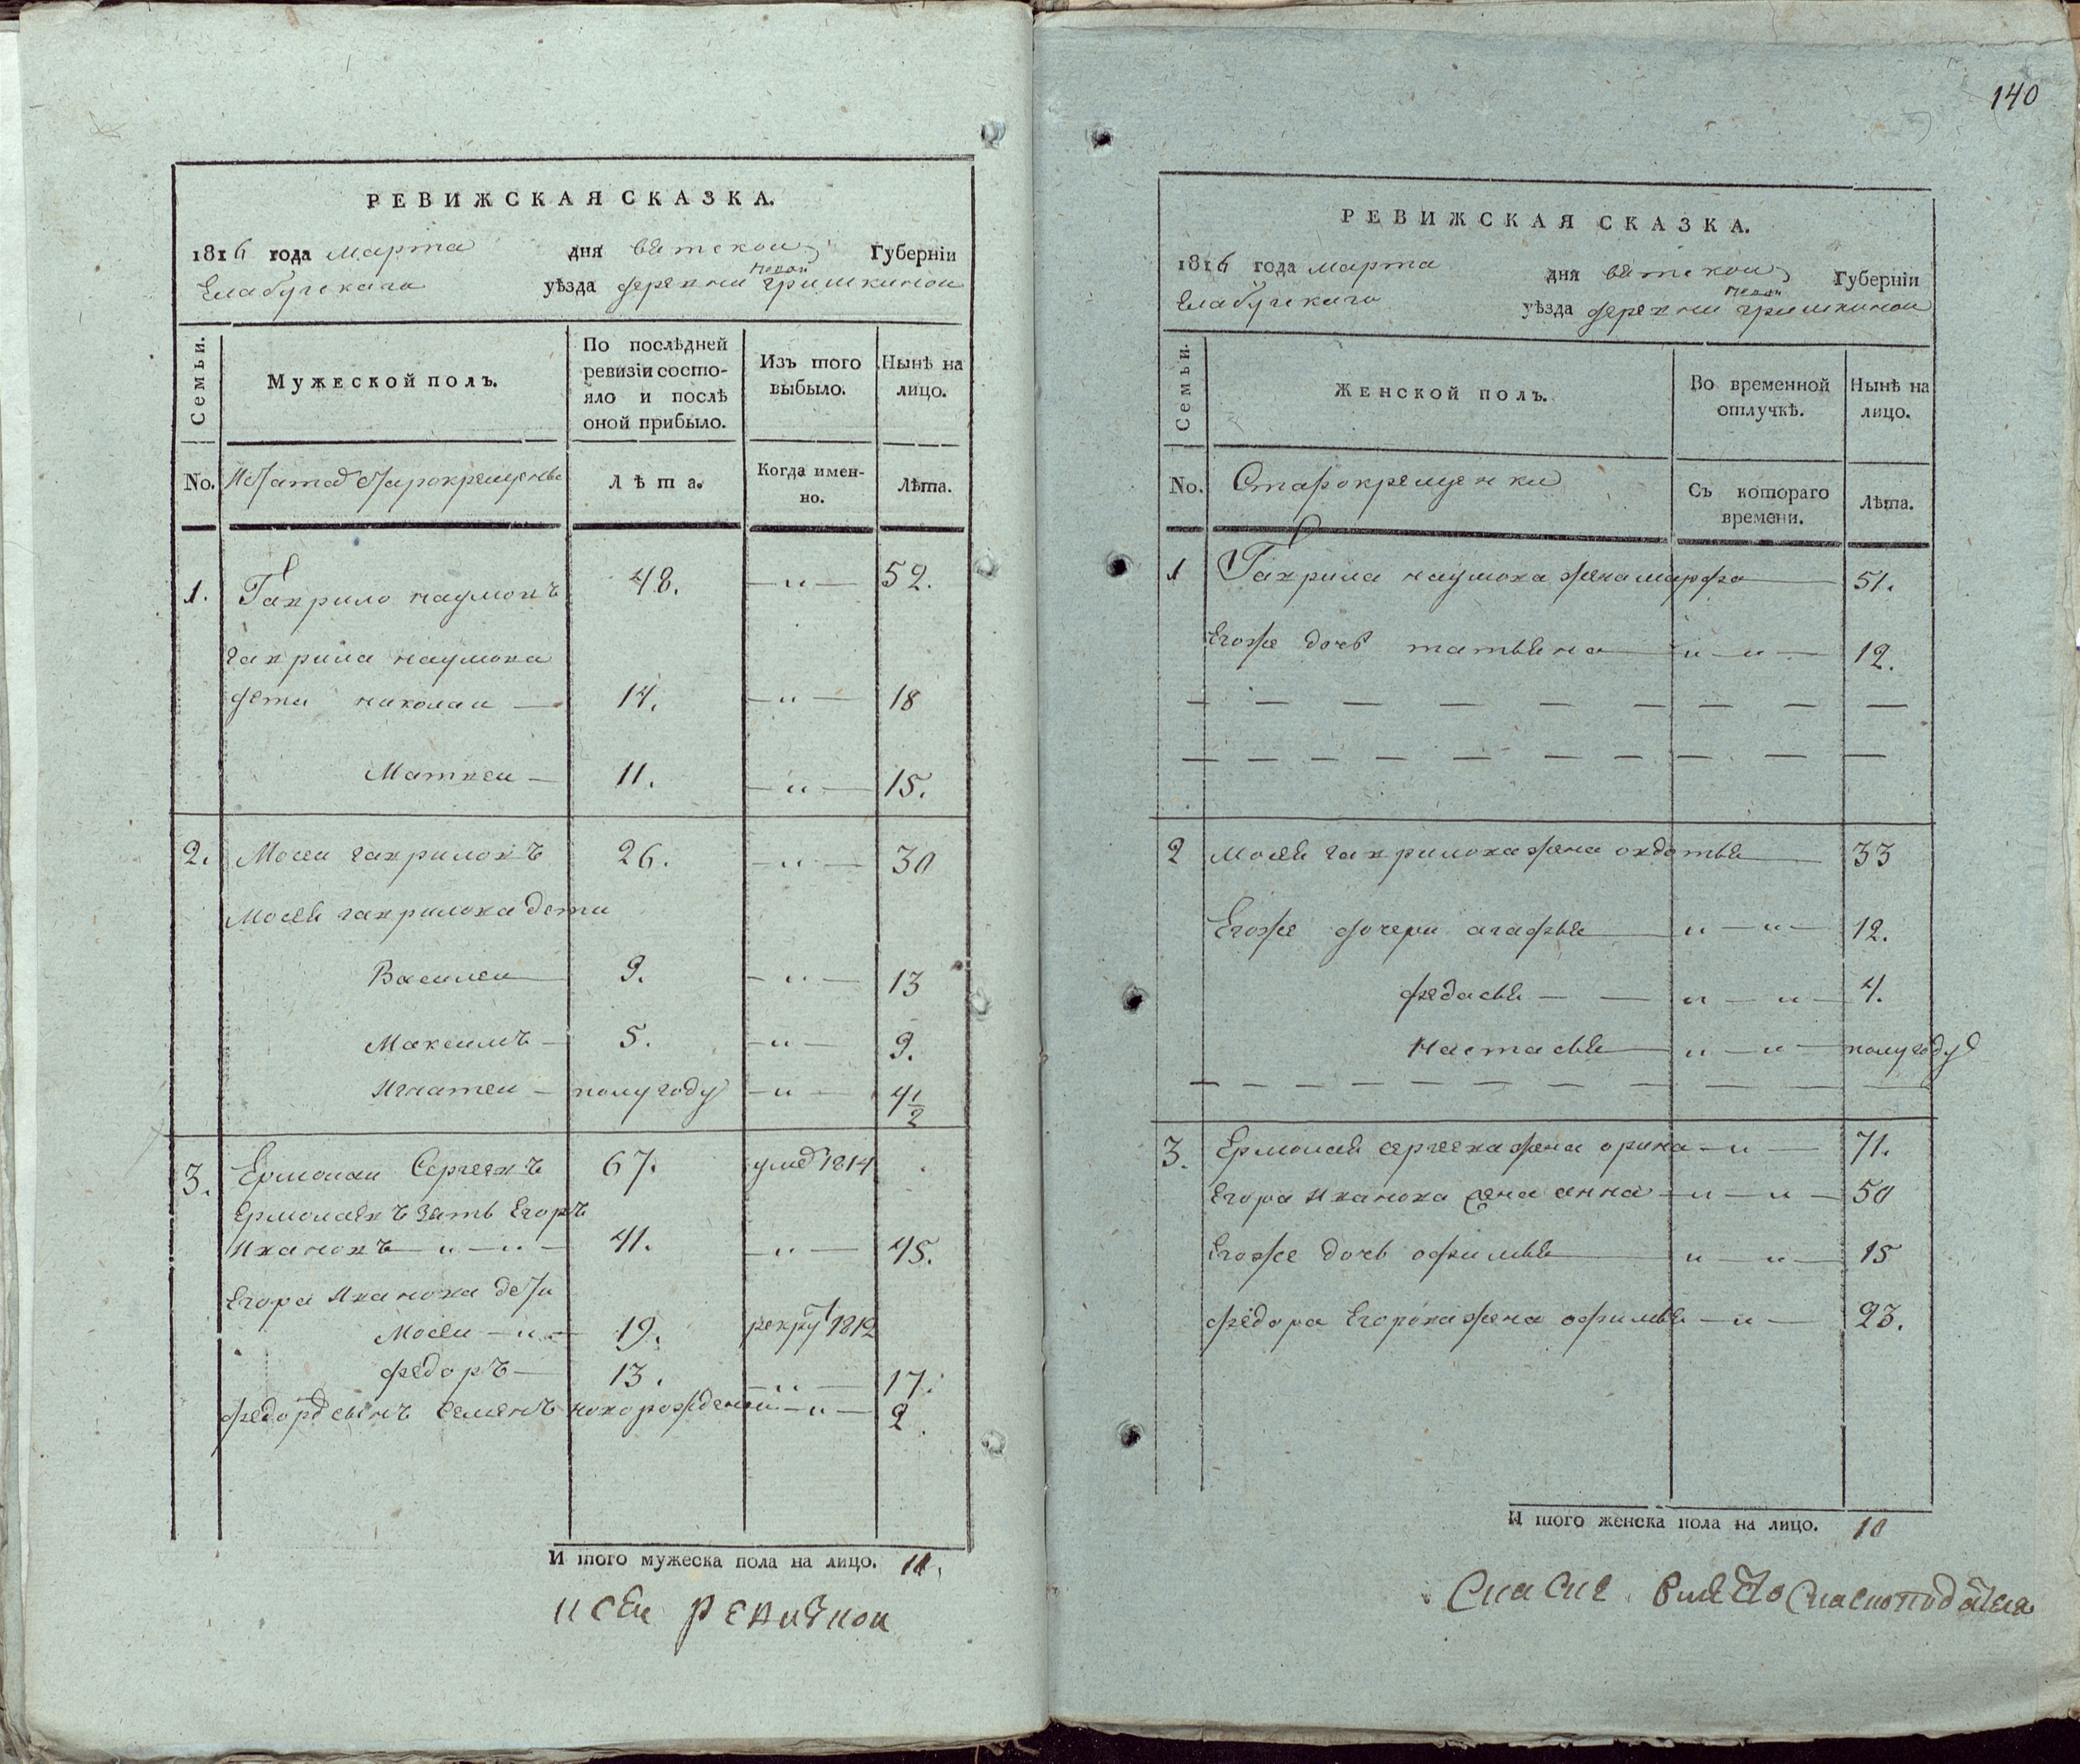 РЕВИЖСКАЯ СКАЗКА.
1816 года марта дня вятской Губерніи
новой
Елабугскаго уѣзда деревни гришкиной
Семьи.
Мужеской полъ.
По послѣдней ревизіи состояло и послѣ оной прибыло.
Изъ того выбыло.
Нынѣ на лицо.
No. старокрещенъ
Лѣта.
Когда именно.
Лѣта.
1. Гаврило наумовъ 48. — „ — 52.
гаврила наумова
дети николаи — 14. — „ — 18
Матвеи — 11. — „ — 15.
2. Мосеи гавриловъ 26. — „ — 30
Мосея гаврилова дети
Василеи 9. — „ — 13
Максимъ — 5. — „ — 9.
Игнатеи — полугоду — „ — 4 1/2
3. Ермолаи Сергеевъ 67. умеръ 1814
Ермолаевъ зять Егоръ
Ивановъ — „ — „ — 41. — „ — 45.
Егора Иванова дети
Мосеи — „ — 19. рекрут 1812
федоръ — 13. — „ — 17.
федора сынъ семенъ новорожденои — „ — 2
И того мужеска пола на лицо. 11.
140
РЕВИЖСКАЯ СКАЗКА.
1816 года марта дня вятской Губерніи
новой
Елабугскаго уѣзда деревни гришкиной
Семьи.
Женской полъ.
Во временной отлучкѣ.
Нынѣ на лицо.
No. Старокрещенки
Съ котораго времени.
Лѣта.
1 Гаврила наумова жена марфа — 51.
Егоже дочь татьяна — „ — „ — 12.
2 мосея гаврилова жена овдотья — 33
Егоже дочери агафья — „ — „ — 12.
федосья — — „ — „ — 4.
настасья — „ — „ — полугоду
3. Ермолая сергеева жена орина — „ — 71.
Егора иванова жена анна — „ — „ — 50
Егоже дочь офимья — „ — „ — 15
федора Егорова жена офимья — „ — 23.
И того женска пола на лицо. 10